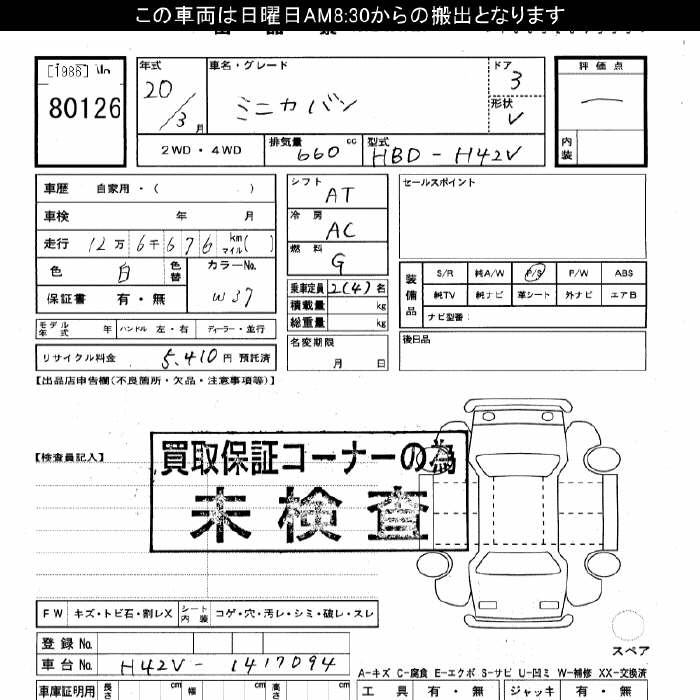 この車両は日曜日AM8:30からの搬出となります
[1986]
80126
年式
20/3月
車名・グレード
ミニカバン
ドア
3
形状
V
評価点
一
内装
2WD・4WD
排気量
660 cc
型式
HBD-H42V
車歴 自家用・( )
車検 年 月
走行 12万6千676 km マイル( )
色 白 色替 カラーNo. W37
保証書 有・無
モデル年式 年 ハンドル 左・右 ディーラー・並行
リサイクル料金 5,410 円 預託済
シフト
AT
冷房
AC
燃料
G
乗車定員 2(4) 名
積載量 kg
総重量 kg
名変期限
月 日
セールスポイント
装備品
S/R 純A/W P/S P/W ABS
純TV 純ナビ 革シート 外ナビ エアB
ナビ型番:
後日品
【出品店申告欄(不良箇所・欠品・注意事項等)】
【検査員記入】
買取保証コーナーの為
未検査
FW キズ・トビ石・割レX シート内装 コゲ・穴・汚レ・シミ・破レ・スレ
スペア
登録No.
車台No. H42V-1417094
A-キズ C-腐食 E-エクボ S-サビ U-凹ミ W-補修 XX-交換済
車庫証明用 長さ cm 幅 cm 高さ cm
工具 有・無 ジャッキ 有・無